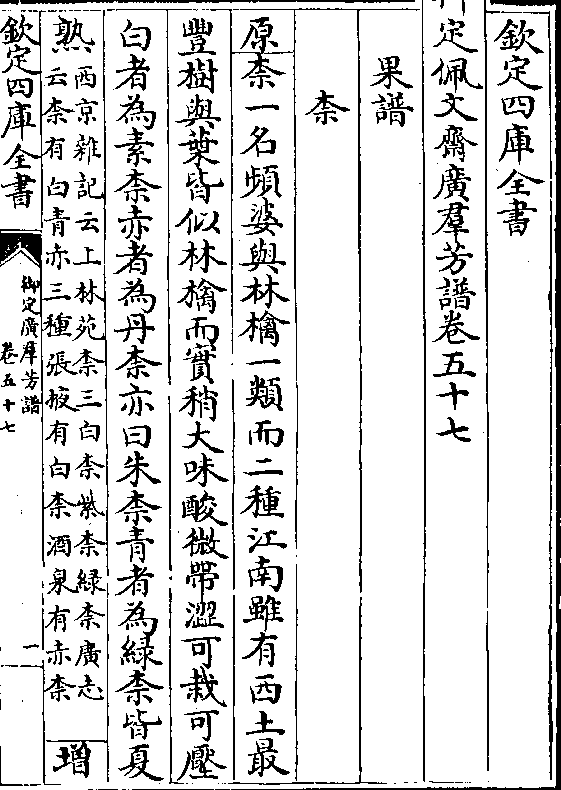 欽定四庫全書
定佩文齋廣羣芳譜卷五十七
果譜
柰
原柰一名頻婆與林檎一類而二種江南雖有西土最
豐樹與葉皆似林檎而實稍大味酸微帶澀可栽可壓
白者為素柰赤者為丹柰亦曰朱柰青者為緑柰皆夏
熟
西京雜記云上林苑柰三白柰紫柰緑柰廣志
云柰有白青赤三種張掖有白柰酒泉有赤柰
增
欽定四庫全書
御定廣羣芳譜
卷五十七
一